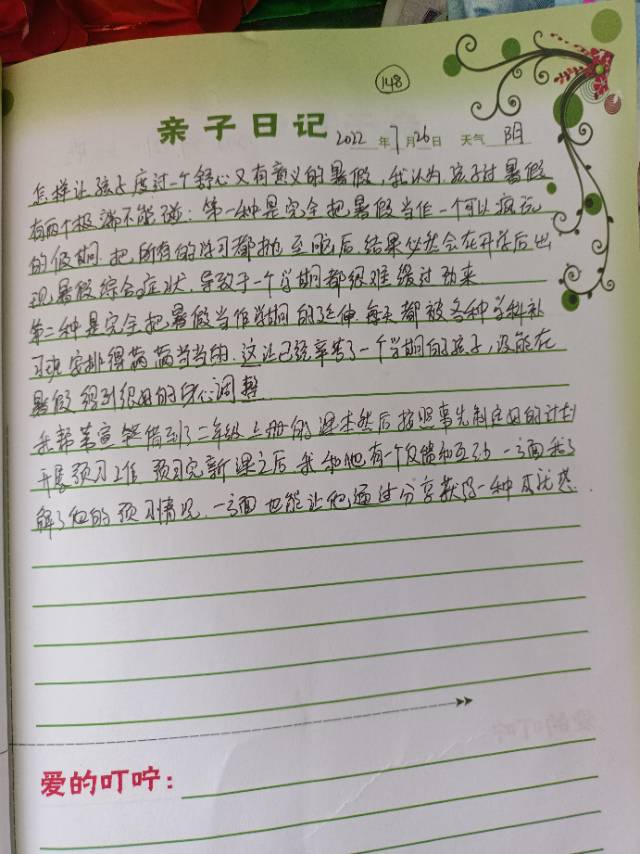 148
亲子日记 2022年7月26日 天气 阴
怎样让孩子度过一个舒心又有意义的暑假,我认为孩子对暑假
有两个极端不能碰:第一种是完全把暑假当作一个可以疯玩
的假期,把所有的学习都抛至脑后,结果必然会在开学后出
现暑假综合症状,导致于一个学期都很难缓过劲来
第二种是完全把暑假当作学期的延伸,每天都被各种学科补
习班安排得满满当当的,这让已经辛苦了一个学期的孩子,没能在
暑假得到很好的身心调整
我帮 借到了二年级上册的课本然后按照事先制定好的计划
开展预习工作,预习完新课之后,我和他有一个反馈和互动,一方面我了
解了他的预习情况,一方面也能让他通过分享获得一种成就感.
爱的叮咛: